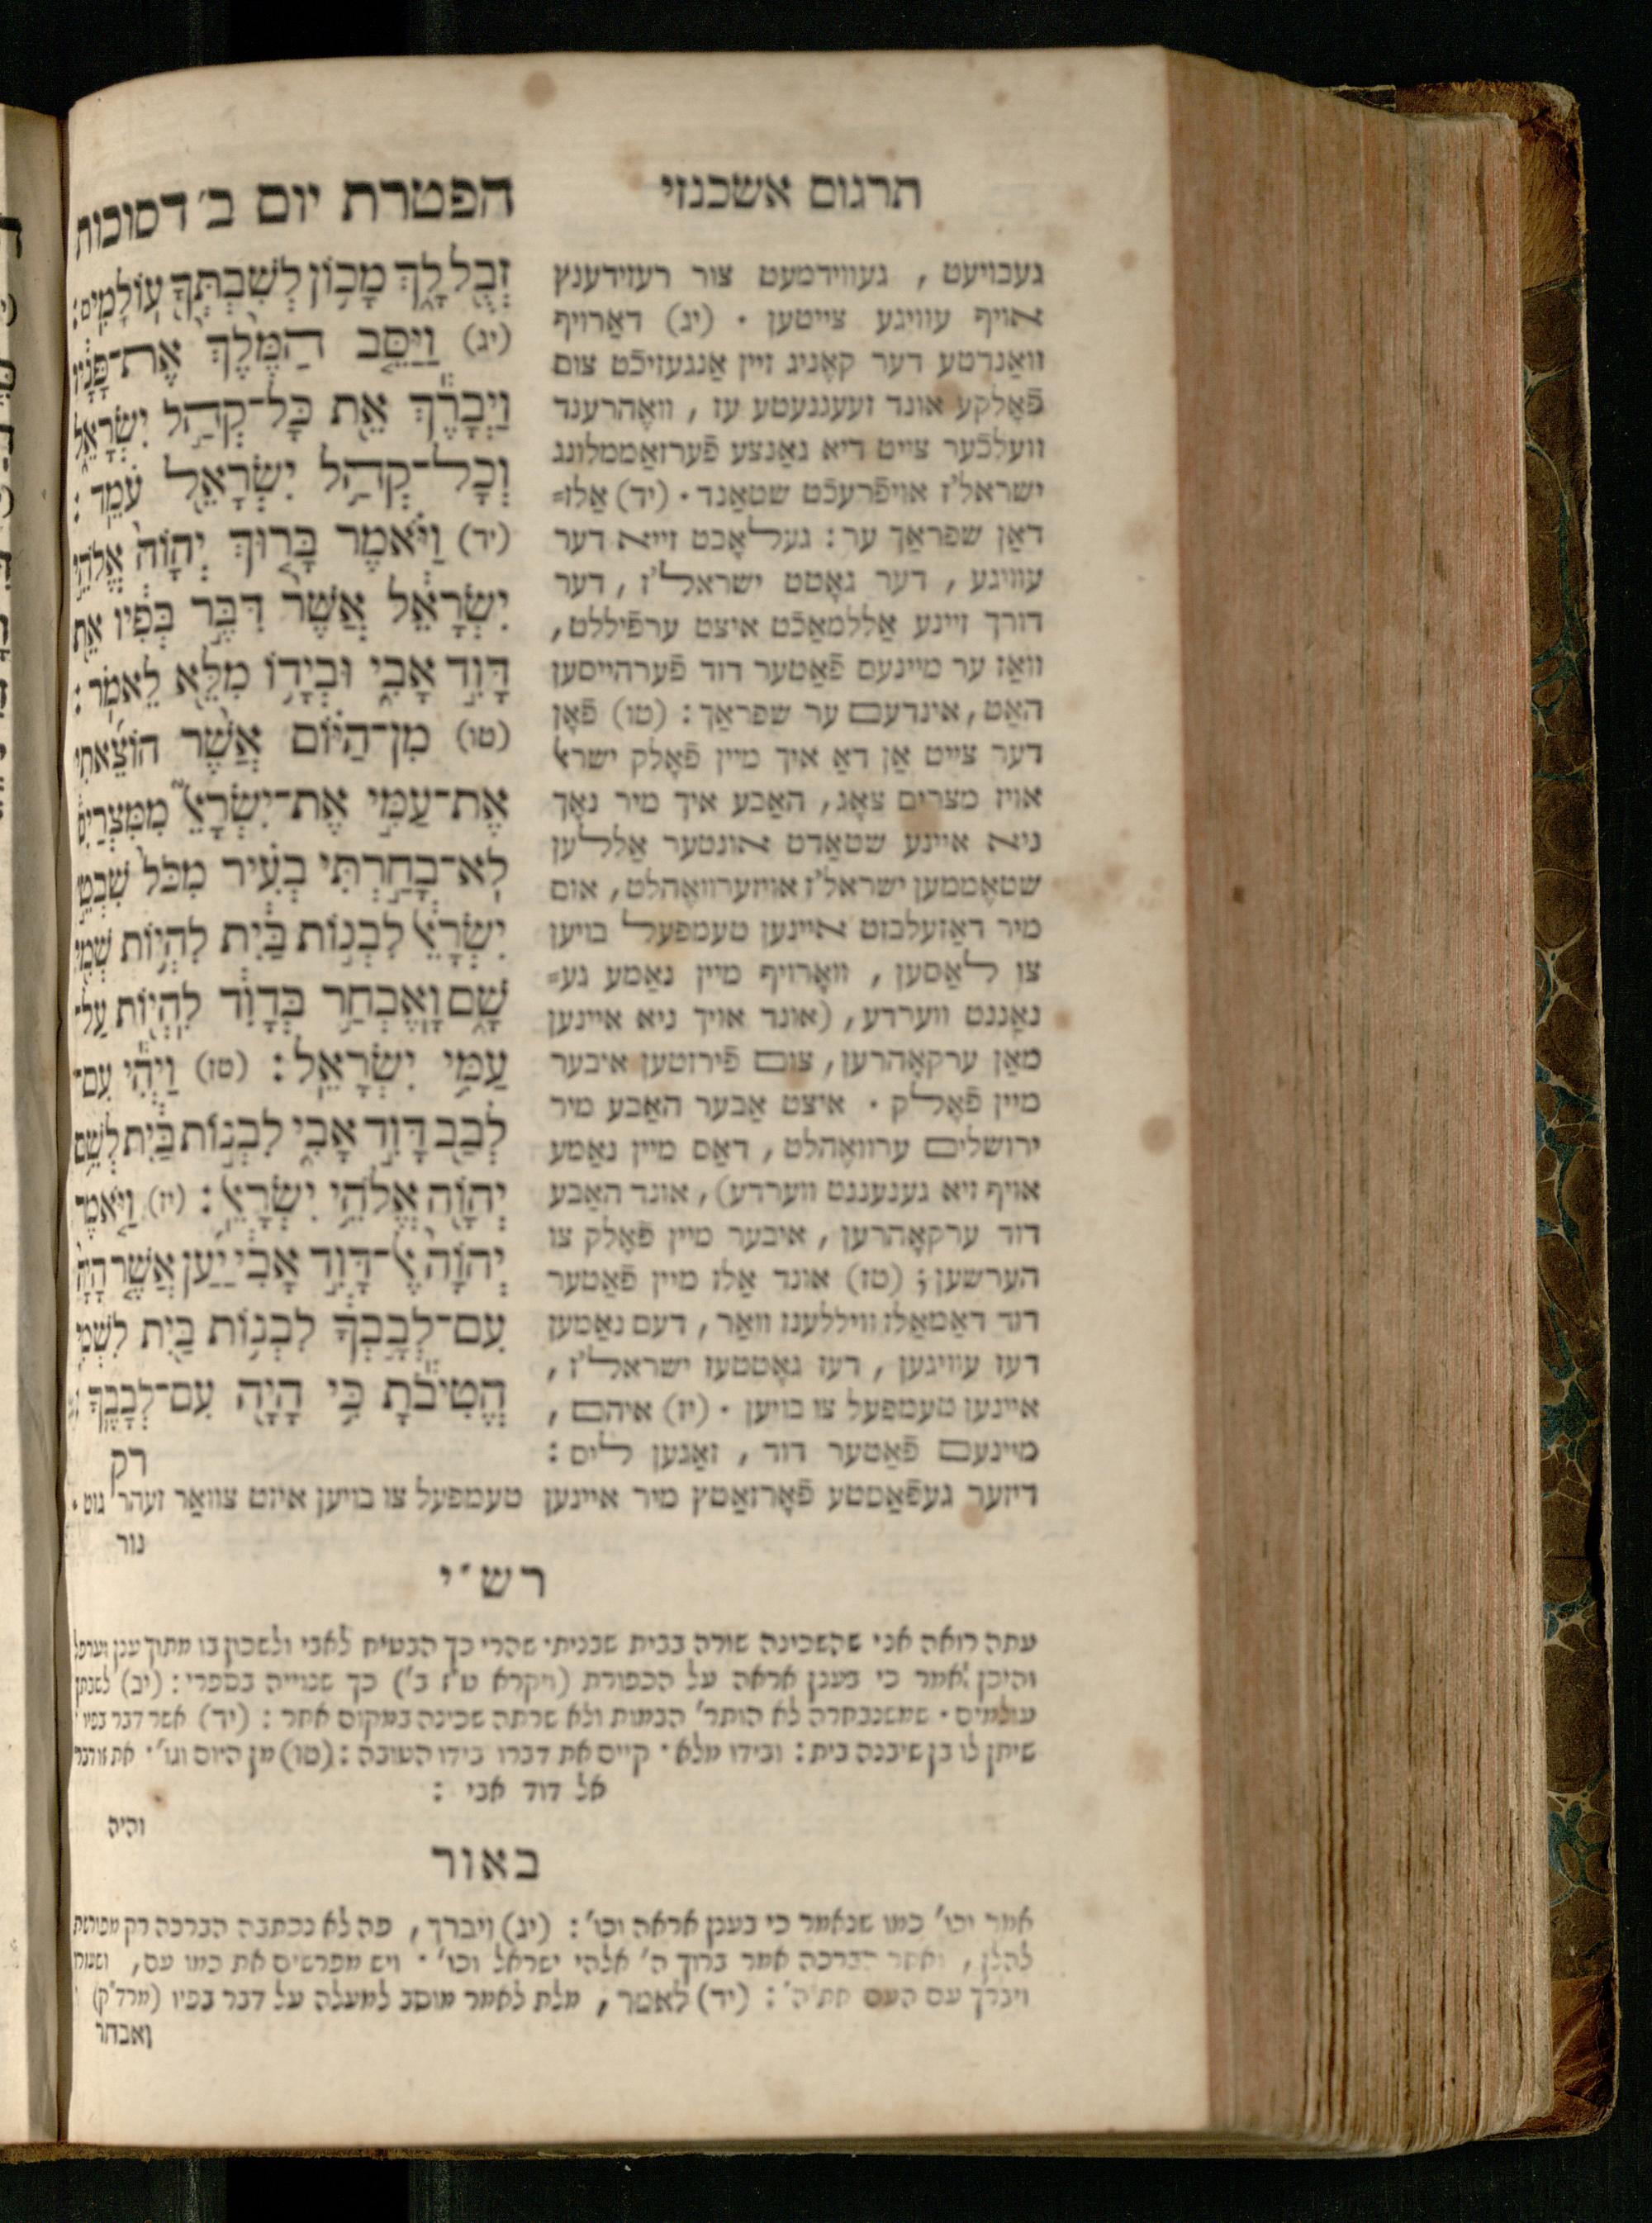 הפטרת יום ב׳ דסוכות
זְבֻ֖ל לָ֑ךְ מָכ֥וֹן לְשִׁבְתְּךָ֖ עֽוֹלָמִֽים׃
(יג) וַיַּסֵּ֤ב הַמֶּ֙לֶךְ֙ אֶת־פָּנָ֔יו
וַיְבָ֕רֶךְ אֵ֖ת כָּל־קְהַ֣ל יִשְׂרָאֵ֑ל
וְכָל־קְהַ֥ל יִשְׂרָאֵ֖ל עֹמֵֽד׃
(יד) וַיֹּ֗אמֶר בָּר֤וּךְ יְהוָֹה֙ אֱלֹהֵ֣י
יִשְׂרָאֵ֔ל אֲשֶׁר֙ דִּבֶּ֣ר בְּפִ֔יו אֵ֖ת
דָּוִ֣ד אָבִ֑י וּבְיָד֥וֹ מִלֵּ֖א לֵאמֹֽר׃
(טו) מִן־הַיּ֗וֹם אֲשֶׁ֨ר הוֹצֵ֜אתִי
אֶת־עַמִּ֣י אֶת־יִשְׂרָאֵל֮ מִמִּצְרַיִם֒
לֹֽא־בָחַ֣רְתִּי בְעִ֗יר מִכֹּל֙ שִׁבְטֵ֣י
יִשְׂרָאֵ֔ל לִבְנ֣וֹת בַּ֔יִת לִהְי֥וֹת שְׁמִ֖י
שָׁ֑ם וָאֶבְחַ֣ר בְּדָוִ֔ד לִֽהְי֖וֹת עַל־
עַמִּ֥י יִשְׂרָאֵֽל׃ (טז) וַיְהִ֕י עִם־
לְבַ֖ב דָּוִ֣ד אָבִ֑י לִבְנ֣וֹת בַּ֔יִת לְשֵׁ֥ם
יְהוָֹ֖ה אֱלֹהֵ֥י יִשְׂרָאֵֽל׃ (יז) וַיֹּ֤אמֶר
יְהוָֹה֙ אֶל־דָּוִ֣ד אָבִ֔י יַ֗עַן אֲשֶׁ֤ר הָיָה֙
עִם־לְבָ֣בְךָ֔ לִבְנ֥וֹת בַּ֖יִת לִשְׁמִ֑י
הֱטִיבֹ֔תָ כִּ֥י הָיָ֖ה עִם־לְבָבֶֽךָ׃
רק
תרגום אשכנזי
געבויעט, געווידמעט צור רעזידענץ
אויף עוויגע צייטען. (יג) דאַרויף
וואַנדטע דער קאָניג זיין אַנגעזיכֿט צום
פֿאָלקע אונד זעעגנעטע עז, וועהרענד
וועלכֿער צייט דיא גאַנצע פֿערזאַממלונג
ישראל׳ז אויפֿרעכֿט שטאַנד. (יד) אַלז=
דאַן שפראַך ער: געלאָבט זייא דער
עוויגע, דער גאָטט ישראל׳ז, דער
דורך זיינע אַללמאַכֿט איצט ערפֿיללט,
וואַז ער מיינעם פֿאַטער דוד פֿערהייסען
האַט, אינדעם ער שפראַך: (טו) פֿאָן
דער צייט אַן דאַ איך מיין פֿאָלק ישראל
אויז מצרים צאָג, האַבע איך מיר נאָך
ניא איינע שטאַדט אונטער אַללען
שטאֶממען ישראל׳ז אויזערוואֶהלט, אום
מיר דאַזעלבזט איינען טעמפעל בויען
צו לאַסען, וואָרויף מיין נאַמע גע=
נאַננט ווערדע, (אונד אויך ניא איינען
מאַן ערקאָהרען, צום פֿירזטען איבער
מיין פֿאָלק. איצט אַבער האַבע מיר
ירושלים ערוואֶהלט, דאַס מיין נאַמע
אויף זיא גענעננט ווערדע), אונד האַבע
דוד ערקאָהרען, איבער מיין פֿאָלק צו
הערשען; (טז) אונד אַלז מיין פֿאַטער
דוד דאַמאַלז וויללענז וואַר, דעם נאַמען
דעז עוויגען, דעז גאָטטעז ישראל׳ז,
איינען טעמפעל צו בויען. (יז) איהם,
מיינעם פֿאַטער דוד, זאַגען ליס:
דיזער געפֿאַסטע פֿאָרזאַטץ מיר איינען טעמפעל צו בויען איזט צוואַר זעהר גוט.
נור
רש״י
עתה רואה אני שהשכינה שורה בבית שבניתי שהרי כך הבטיח לאבי ולשכון בו מתוך ענן וערפל
והיכן אמר כי בענן אראה על הכפורת (ויקרא ט״ז ב׳) כך שנוייה בספרי: (יב) לשבתך
עולמים. שמשנבחרה לא הותר׳ הבמות ולא שרתה שכינה במקום אחר: (יד) אשר דבר בפיו
שיתן לו בן שיבנה בית: ובידו מלא. קיים את דברו בידו הטובה: (טו) מן היום וגו׳.
אל דוד אבי:
והיה
באור
אמר וכו׳ כמו שנאמר כי בענן אראה וכו׳: (יג) ויברך, פה לא נכתבה הברכה רק מפורשת
להלן, ואחר הברכה אמר ברוך ה׳ אלהי ישראל וכו׳. ויש מפרשים את כמו עם,
ויברך עם העם את ה׳: (יד) לאמר, מלת לאמר מוסב למעלה על דבר בפיו (מרד״ק)
ואבחר